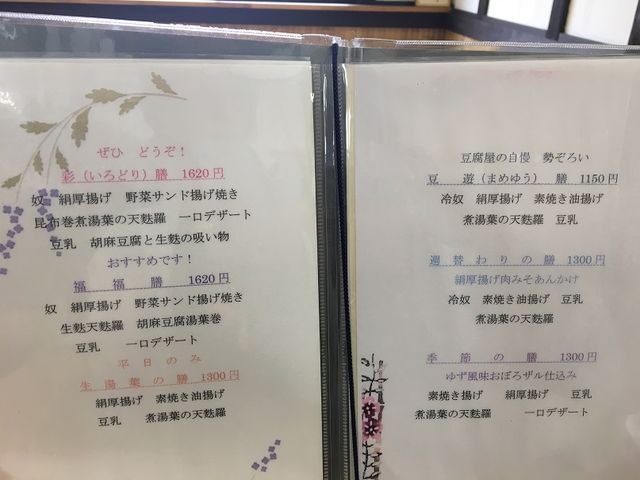 ぜひ　どうぞ！
彩（いろどり）膳　1620円
奴　絹厚揚げ　野菜サンド揚げ焼き
昆布巻煮湯葉の天麩羅　一口デザート
豆乳　胡麻豆腐と生麩の吸い物
おすすめです！
福　福　膳　1620円
奴　絹厚揚げ　野菜サンド揚げ焼き
生麩天麩羅　胡麻豆腐湯葉巻
豆乳　一口デザート
平日のみ
生湯葉の膳　1300円
絹厚揚げ　素焼き油揚げ
豆乳　煮湯葉の天麩羅
豆腐屋の自慢　勢ぞろい
豆　遊（まめゆう）膳　1150円
冷奴　絹厚揚げ　素焼き油揚げ
煮湯葉の天麩羅　豆乳
週替わりの膳　1300円
絹厚揚げ肉みそあんかけ
冷奴　素焼き油揚げ　豆乳
煮湯葉の天麩羅
季節の膳　1300円
ゆず風味おぼろザル仕込み
素焼き揚げ　絹厚揚げ　豆乳
煮湯葉の天麩羅　一口デザート